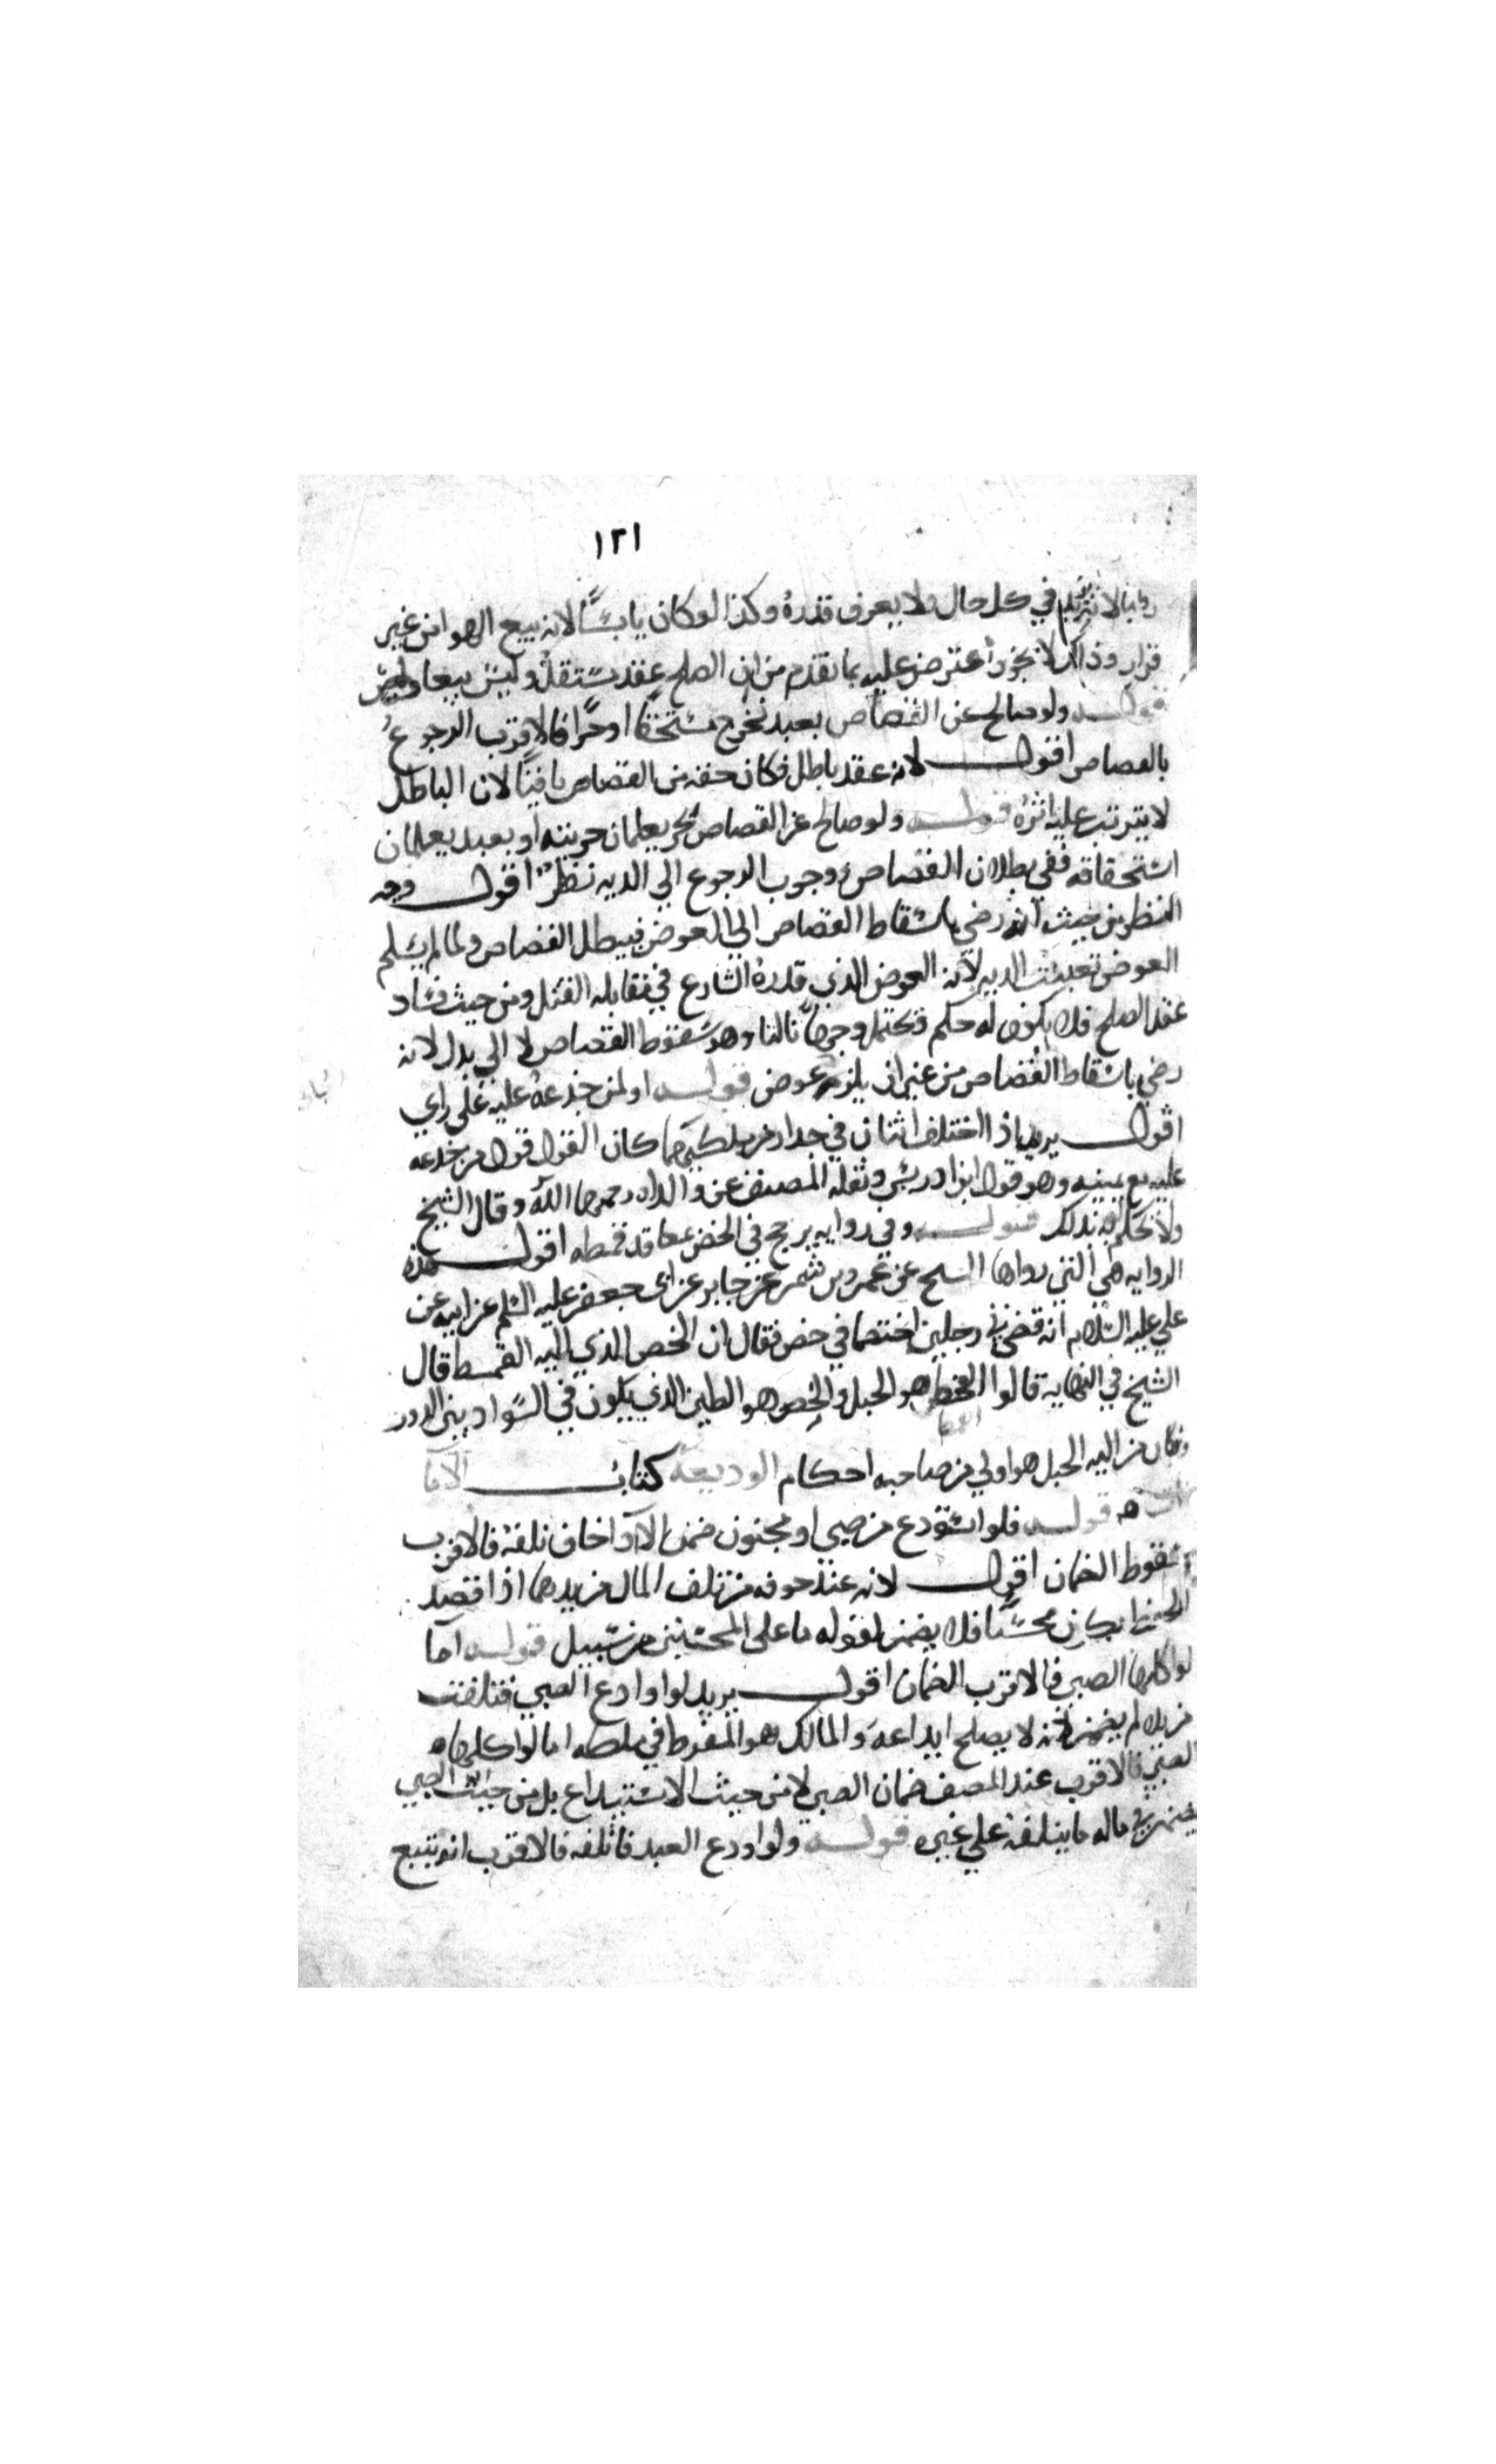 ١٢١
في كل حال ولا يعرف قدره وكذا لو كان يابسًا لانه بيع الهوا من غير
قرار وذلك لا يجوز اعترض عليه بما تقدم من ان الصلح عقد مستقل وليس بيعا
قولـه ولو صالح عن القصاص بعبد فخرج مستحقا او حرًا فالاقرب الرجوع
بالقصاص اقول لانه عقد باطل فكان حقه من القصاص باقيًا لان الباطل
لا يترتب عليه اثره قولـه ولو صالح عن القصاص بحر يعلمان حريته او بعبد يعلمان
استحقاقه ففي بطلان القصاص ووجوب الرجوع الي الديه نظر اقول وجه
النظر من حيث انه رضي باسقاط القصاص الي العوض فيبطل القصاص ولما لم يسلم
العوض تعينت الديه لانه العوض الذي قدره الشارع في مقابله القتل ومن حيث فساد
عقد الصلح فلا يكون له حكم ويحتمل وجهًا ثالثا وهو سقوط القصاص لا الي بدل لانه
رضي باسقاط القصاص من غير ان يلزمه عوض قولـه او لمن جذعه عليه علي راي
اقول يريد اذا اختلف اثنان في جدار من ملكيهما كان القول قول من جذعه
عليه مع يمينه وهو قول ابن ادريس ونقله المصنف عن والداه رحمهما الله وقال الشيخ
ولا نحكم له بذلك قولـه وفي روايه يرجح في الخص بمعاقد قمطه اقول هذه
الروايه هي التي رواها الشيخ عن عمرو بن شمر عن جابر عن ابي جعفر عليه السلم عن ابيه عن
علي عليه السلام انه قضي في رجلين اختصما في خص فقال ان الخص الذي اليه القمط قال
الشيخ في النهاية قالوا القمط هو الحبل والخص هو الطين الذي يكون في السواد بين الدور
وكان من اليه الحبل هو اولي من صاحبه احكام الوديعة كتاب الاما
نات ه قولـه فلو استودع من صبي او مجنون ضمن الا اذا خاف تلفه فالاقرب
سقوط الضمان اقول لانه عند خوفه من تلف المال من يدهما اذا قصد
الحفظ يكون محسنًا فلا يضمن لقوله ما علي المحسنين من سبيل قولـه اما
لو اكلها الصبي فالاقرب الضمان اقول يريد لو اودع الصبي فتلفت
من يده لم يضمن لانه لا يصلح ايداعه والمالك هو المفرط في ماله اما لو اكلها
الصبي فالاقرب عند المصنف ضمان الصبي لا من حيث الاستيداع بل من حيث الصبي
يضمن في ماله ما يتلفه علي غيره قولـه ولو اودع العبد فاتلفه فالاقرب انه يتبع